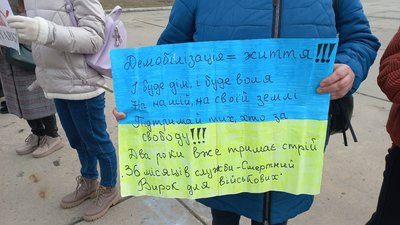 Демобілізація = життя!!!
І буде дім, і буде воля
На нашій, на своїй землі
Підтримай тих, хто за
свободу!!!
Два роки вже тримає стрій
36 місяців служби - Смертний
Вирок для військових.